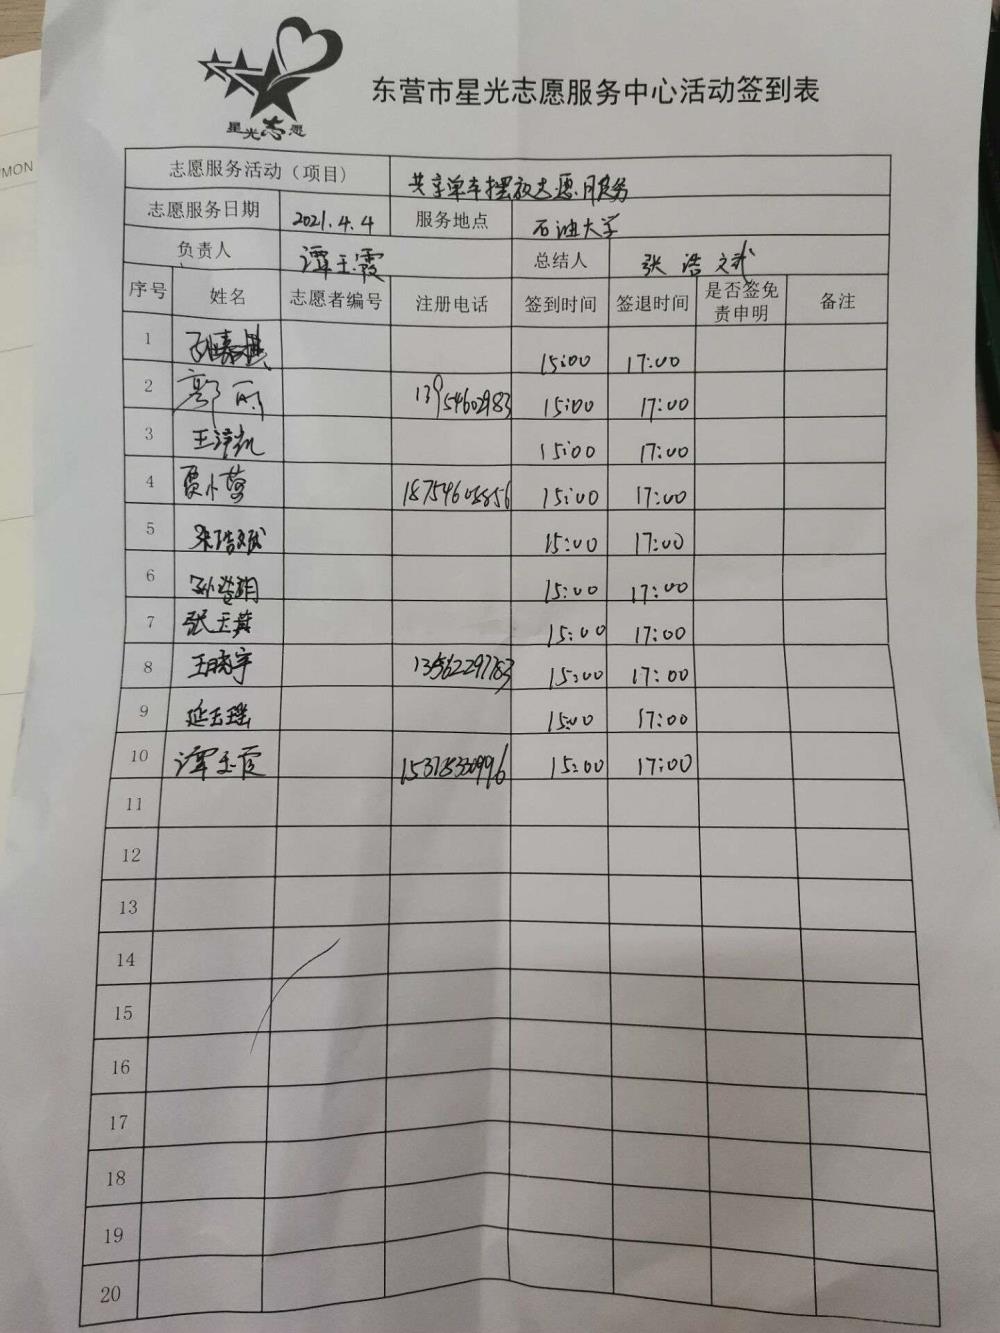 MON
星光志愿
东营市星光志愿服务中心活动签到表
志愿服务活动（项目） 共享单车摆放志愿服务
志愿服务日期 2021.4.4 服务地点 石油大学
负责人 谭玉霞 总结人 张浩斌
序号 姓名 志愿者编号 注册电话 签到时间 签退时间 是否签免责申明 备注
1 15:00 17:00
2 郭丽 13954602983 15:00 17:00
3 15:00 17:00
4 贾小蓉 15:00 17:00
5 15:00 17:00
6 15:00 17:00
7 张玉英 15:00 17:00
8 王晓宇 15:00 17:00
9 延玉瑶 15:00 17:00
10 谭玉霞 15:00 17:00
11
12
13
14
15
16
17
18
19
20